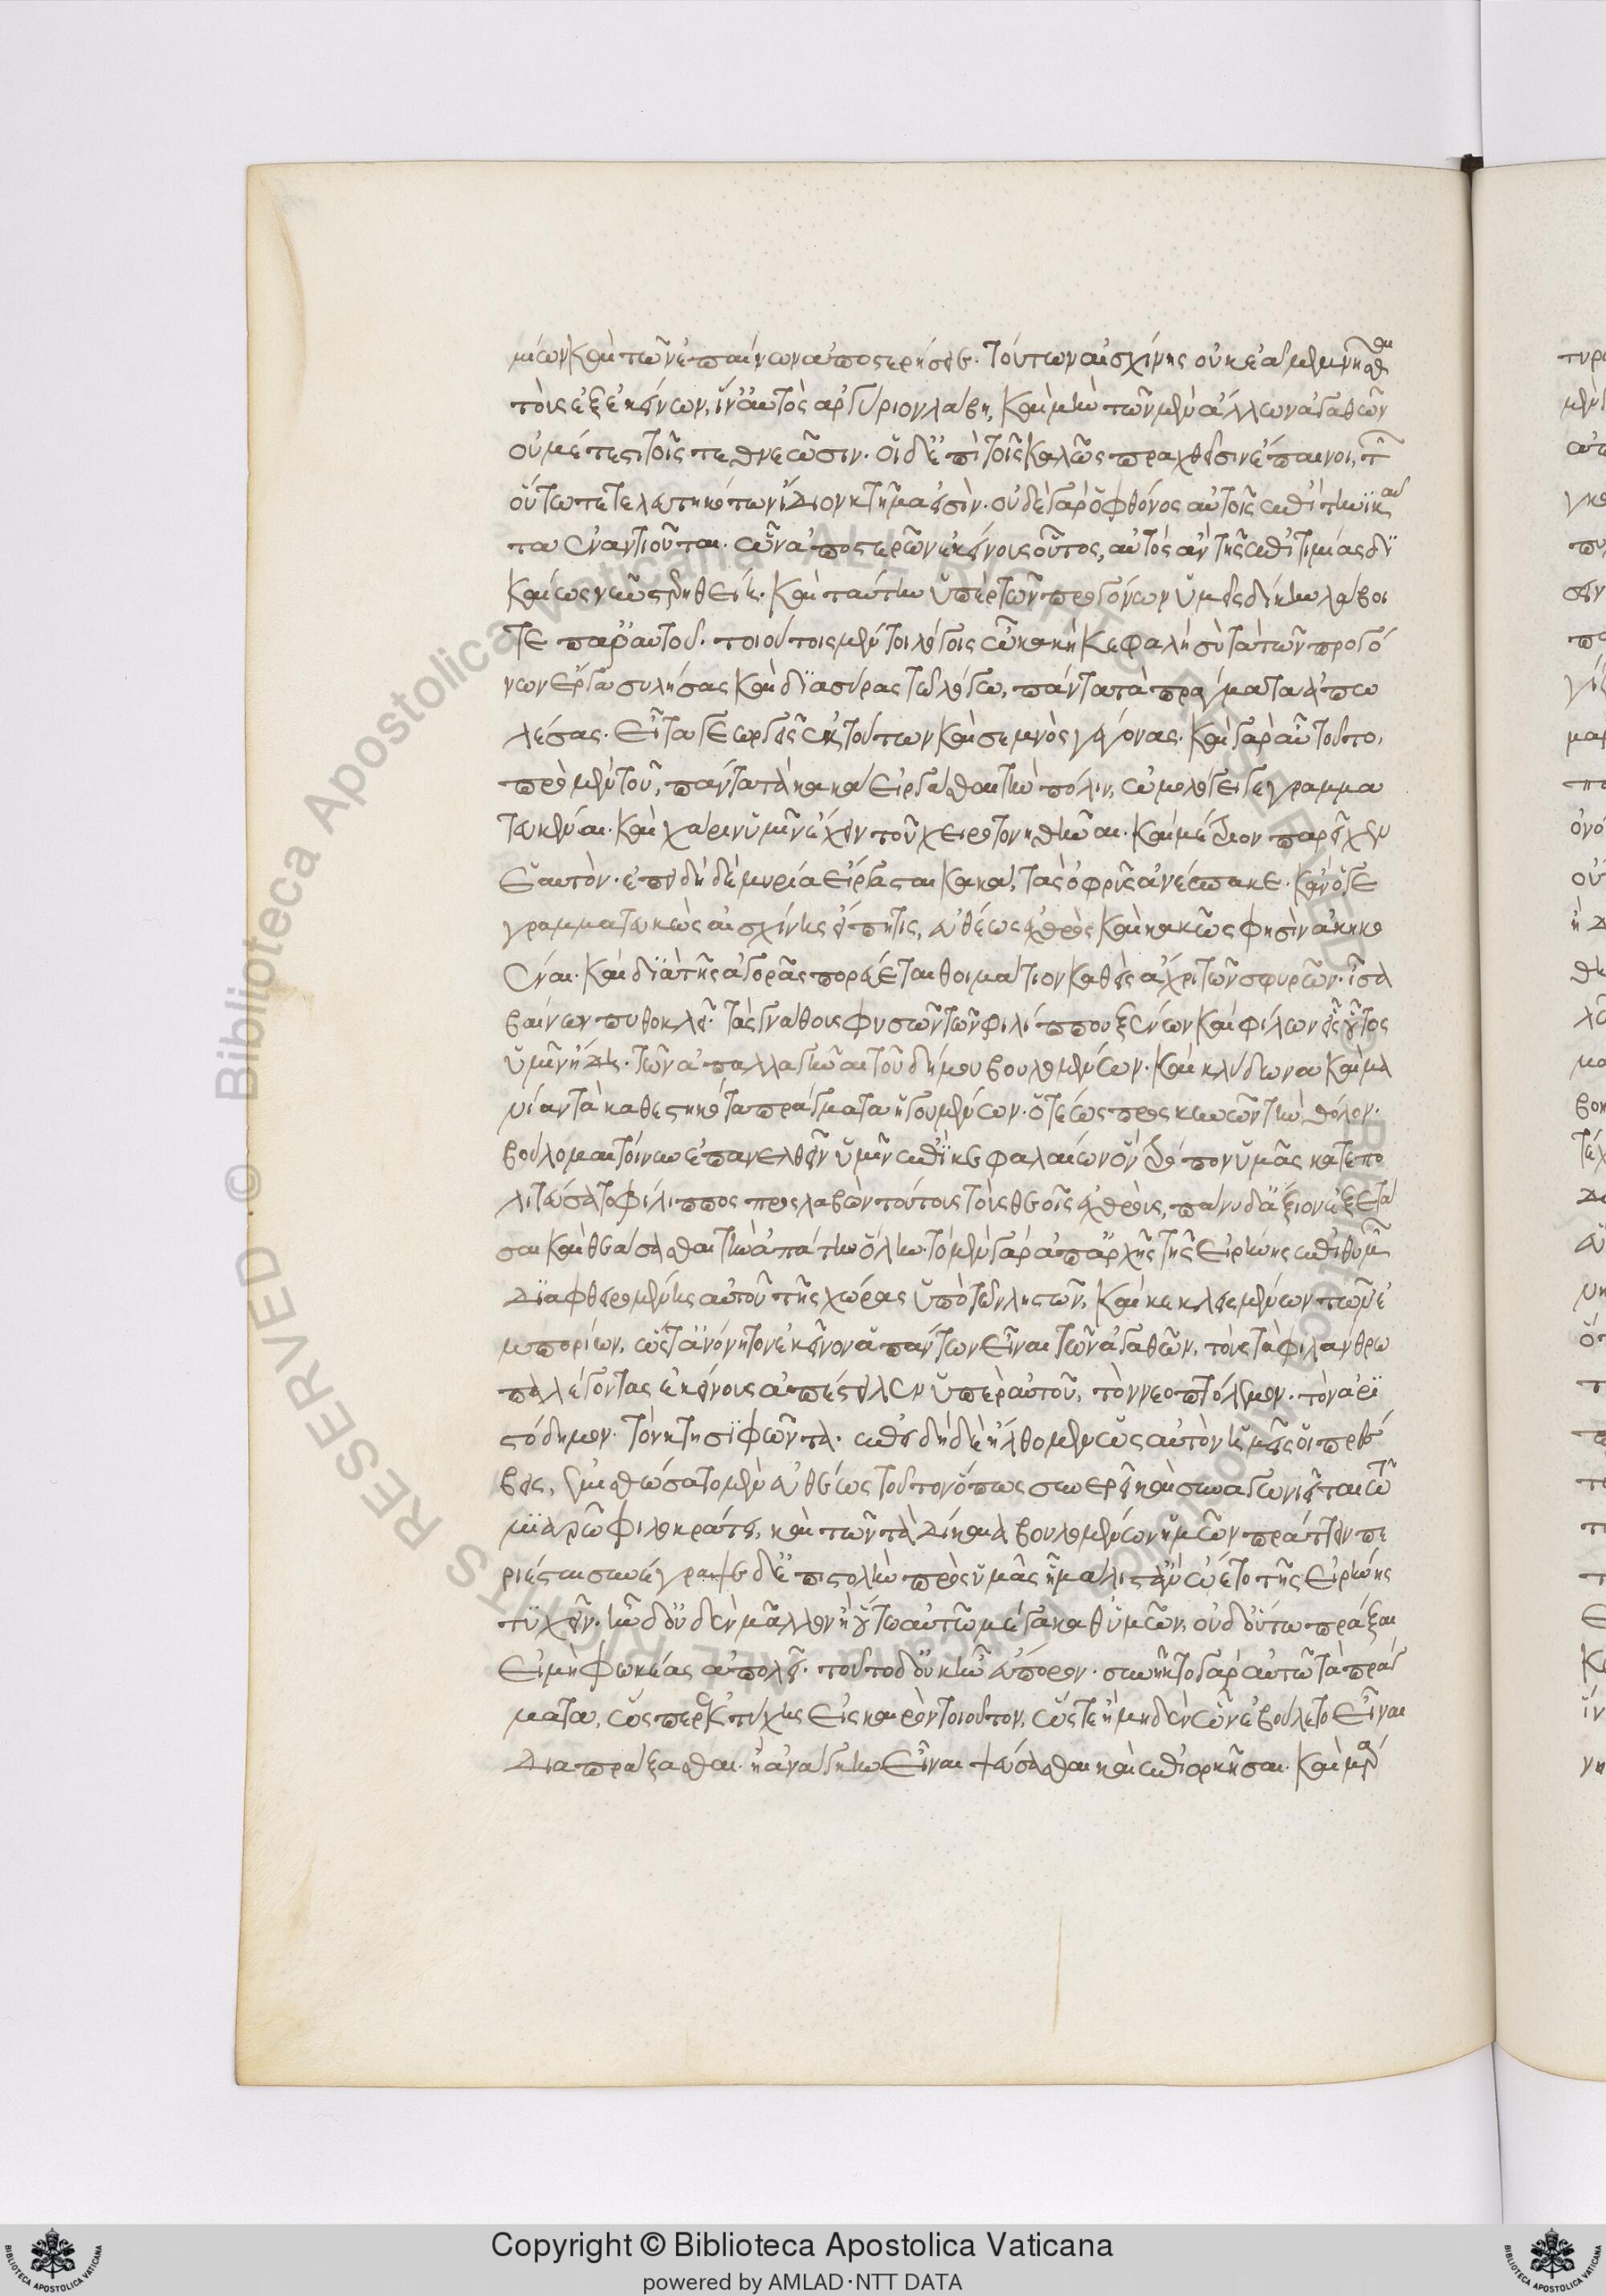 μίων καὶ τῶν ἐπαίνων ἀποστερήσει. τούτων αἰσχίνης οὐκ ἐᾷ μεμνῆσθαι
τοὺς ἐξ ἐκείνων, ἵν' αὐτὸς ἀργύριον λάβῃ, καὶ μὴν τῶν μὲν ἄλλων ἀγαθῶν
οὐ μέτεστι τοῖς τεθνεῶσιν. οἱ δ' ἐπὶ τοῖς καλῶς πραχθεῖσιν ἔπαινοι, τῶν
οὕτω τετελευτηκότων ἴδιον κτῆμα εἰσίν. οὐδὲ γὰρ ὁ φθόνος αὐτοῖς ἔτι τηνικαῦ
τα ἐναντιοῦται. ὧν ἀποστερῶν ἐκείνους οὗτος, αὐτὸς ἂν τῆς ἐπιτιμίας δι
καίως νῦν στερηθείη. καὶ ταύτην ὑπὲρ τῶν προγόνων ὑμεῖς δίκην λάβοι
τε παρ' αὐτοῦ. τοιούτοις μέντοι λόγοις ὦ κακὴ κεφαλὴ σὺ τὰ τῶν προγό
νων ἔργα συλήσας καὶ διασύρας τῷ λόγῳ, πάντα τὰ πράγματα ἀπώ
λεσας. εἶτα γεωργεῖς ἐκ τούτων καὶ σεμνὸς γέγονας. καὶ γὰρ αὖ τοῦτο,
πρὸ μὲν τοῦ, πάντα τὰ κακὰ εἰργάσθαι τὴν πόλιν, ὡμολόγει γεγραμμα
τευκέναι. καὶ χάριν ὑμῖν ἔχειν τοῦ χειροτονηθῆναι. καὶ μέτριον παρεῖχεν
ἑαυτόν. ἐπειδὴ δὲ μυρία εἴργασται κακά, τὰς ὀφρῦς ἀνέσπακε. κἂν ὁ γε
γραμματευκὼς αἰσχίνης εἴπῃ τις, εὐθέως ἐχθρὸς καὶ κακῶς φησὶν ἀκηκο
έναι. καὶ διὰ τῆς ἀγορᾶς πορεύεται θοιμάτιον καθεὶς ἄχρι τῶν σφυρῶν. ἴσα
βαίνων πυθοκλεῖ. τὰς γνάθους φυσῶν τῶν φιλίππου ξένων καὶ φίλων εἷς οὗτος
ὑμῖν ἤδη. τῶν ἀπαλλαγῆναι τοῦ δήμου βουλομένων. καὶ κλύδωνα καὶ μα
νίαν τὰ καθεστηκότα πράγματα ἡγουμένων. ὁ τέως προσκυνῶν τὴν θόλον.
βούλομαι τοίνυν ἐπανελθεῖν ὑμῖν ἐπὶ κεφαλαίων ὃν τρόπον ὑμᾶς κατεπο
λιτεύσατο φίλιππος προσλαβὼν τούτους τοὺς θεοῖς ἐχθρούς, πάνυ δ' ἄξιον ἐξετά
σαι καὶ θεάσασθαι τὴν ἀπάτην ὅλην. τὸ μὲν γὰρ ἀπ' ἀρχῆς τῆς εἰρήνης ἐπιθυμῶν
διαφθειρομένης αὐτοῦ τῆς χώρας ὑπὸ τῶν λῃστῶν, καὶ κεκλειμένων τῶν ἐ
μπορίων, ὥστ' ἀνόνητον ἐκεῖνον ἁπάντων εἶναι τῶν ἀγαθῶν, τοὺς τὰ φιλάνθρω
πα λέγοντας ἐκείνους ἀπέστειλεν ὑπὲρ αὐτοῦ, τὸν νεοπτόλεμον. τὸν ἀρι
στόδημον. τὸν κτησιφῶντα. ἐπειδὴ δὲ ἤλθομεν ὡς αὐτὸν ἡμεῖς οἱ πρέσ
βεις, ἐμισθώσατο μὲν εὐθέως τοῦτον ὅπως συνερεῖ καὶ συναγωνιεῖται τῷ
μιαρῷ φιλοκράτει, καὶ τῶν τὰ δίκαια βουλομένων ἡμῶν πράττειν πε
ριέσται συνέγραψε δ' ἐπιστολὴν πρὸς ὑμᾶς ᾗ μάλιστ' ἂν ᾤετο τῆς εἰρήνης
τυχεῖν. ἦν δ' οὐδὲν μᾶλλον ἢ οὕτω αὐτῷ μέγα καθ' ὑμῶν, οὐδ' οὕτω πρᾶξαι
εἰ μὴ φωκέας ἀπολεῖ. τοῦτο δ' οὐκ ἦν εὔπορον. συνῆκτο γὰρ αὐτῷ τὰ πράγ
ματα, ὥσπερ ἐκ τύχης εἰς καιρὸν τοιοῦτον, ὥστε ἢ μηδὲν ὧν ἐβούλετο εἶναι
διαπράξασθαι. ἢ ἀνάγκην εἶναι ψεύσασθαι καὶ ἐπιορκῆσαι. καὶ μάρ
Copyright © Biblioteca Apostolica Vaticana
powered by AMLAD·NTT DATA